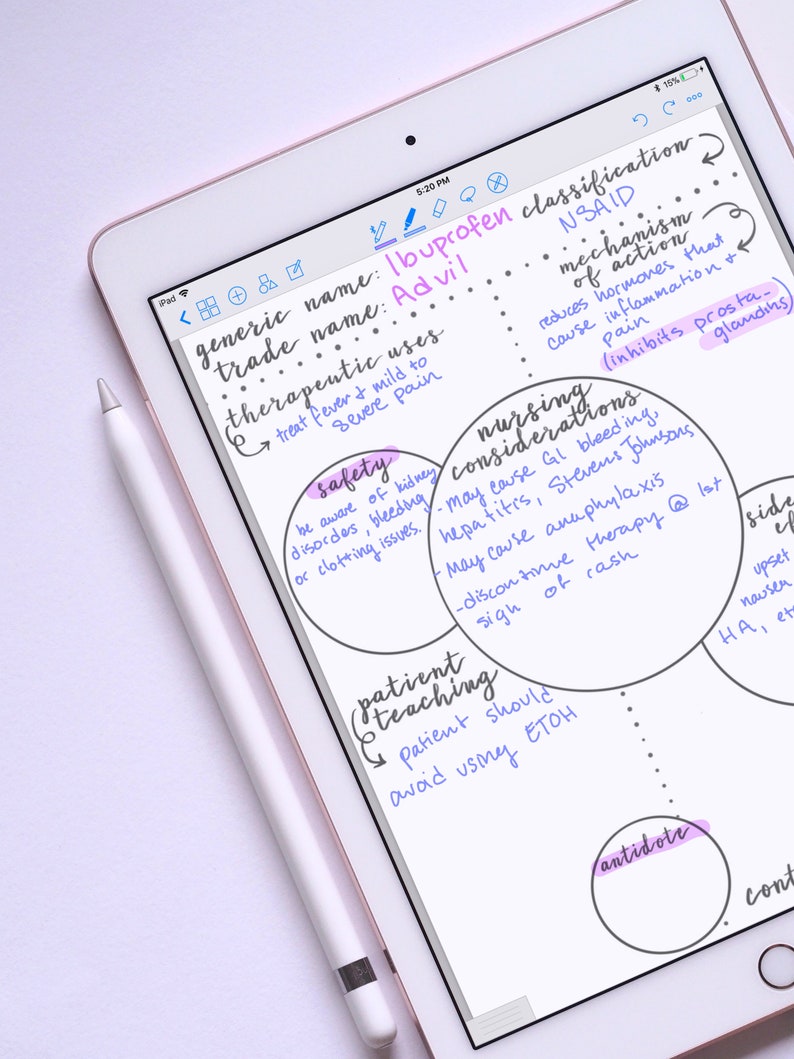 5:20 PM
15%
iPad
generic name: Ibuprofen
trade name: Advil
classification
NSAID
mechanism
of action
reduces hormones that
cause inflammation +
pain
(inhibits prosta-
glandins)
therapeutic uses
treat fever & mild to
severe pain
safety
be aware of kidney
disorders, bleeding
or clotting issues.
nursing
considerations
- May cause GI bleeding,
hepatitis, Stevens Johnsons
- May cause anaphylaxis
- discontinue therapy @ 1st
sign of rash
side
ef
upset
nausea
HA, etc
patient
teaching
patient should
avoid using ETOH
antidote
cont